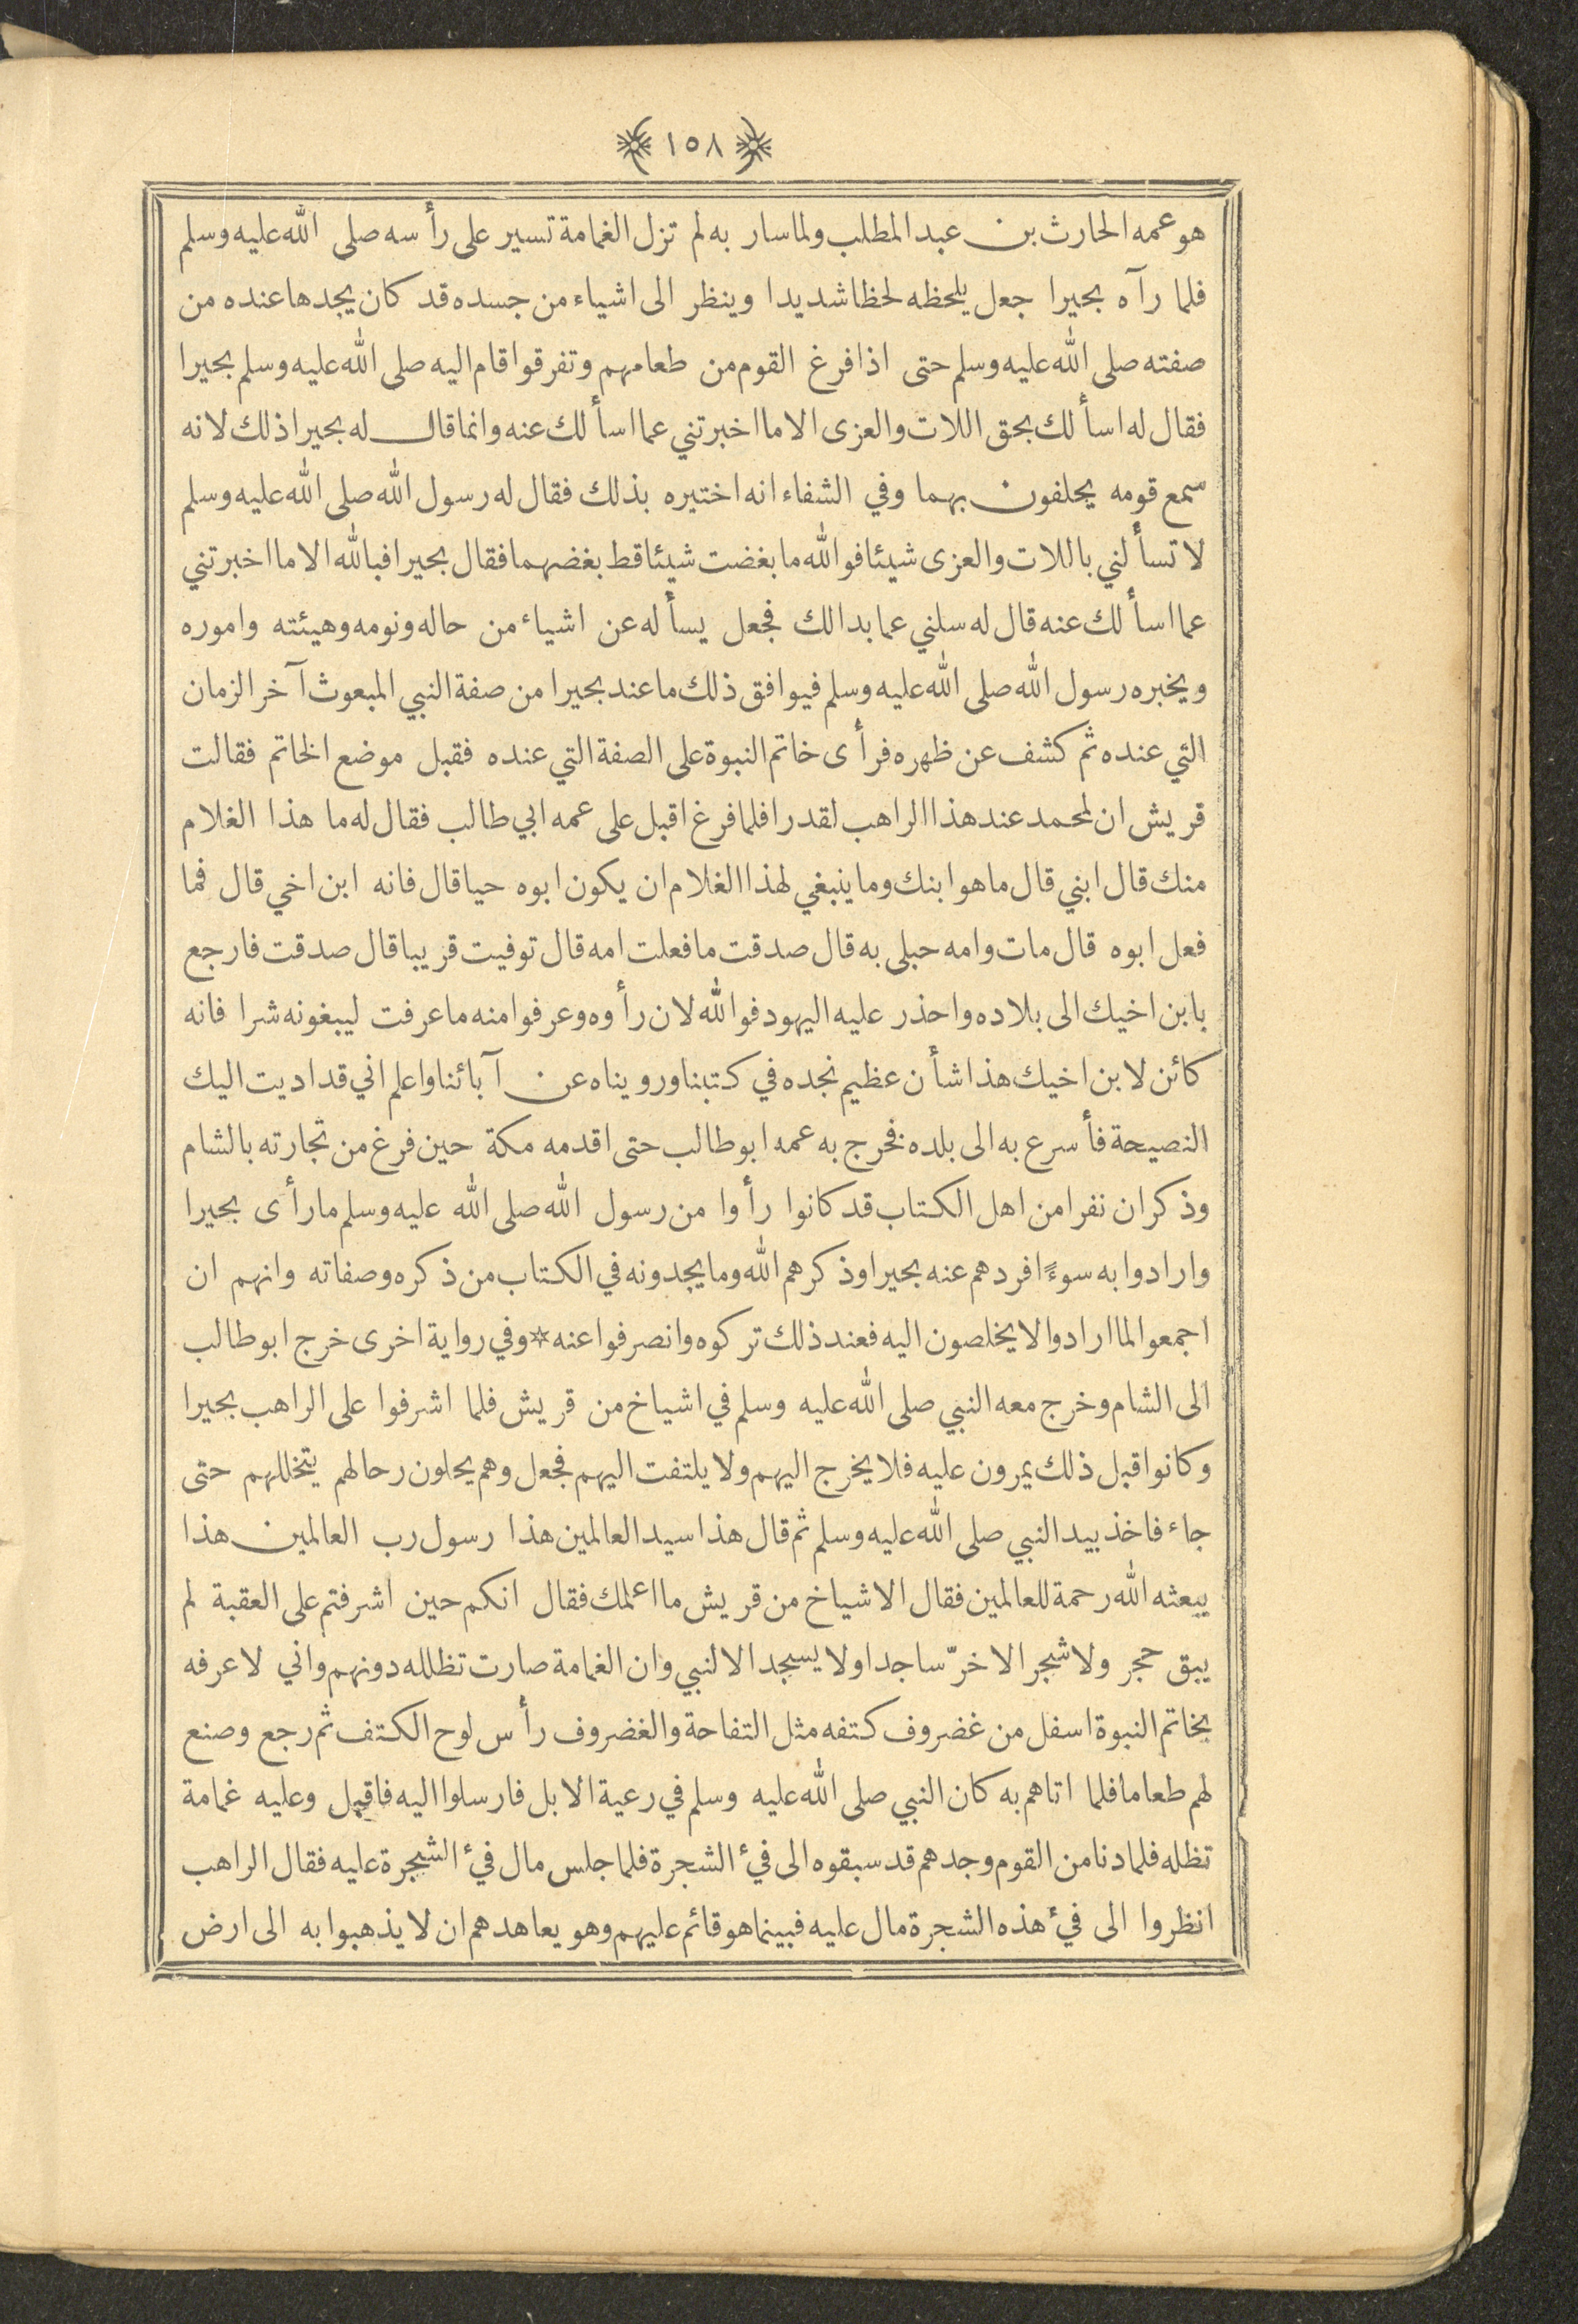 ﴿ ١٥٨ ﴾
هو عمه الحارث بن عبد المطلب ولما سار به لم تزل الغمامة تسير على رأسه صلى الله عليه وسلم
فلما رآه بحيرا جعل يلحظه لحظا شديدا وينظر الى اشياء من جسده قد كان يجدها عنده من
صفته صلى الله عليه وسلم حتى اذا فرغ القوم من طعامهم وتفرقوا قام اليه صلى الله عليه وسلم بحيرا
فقال له اسألك بحق اللات والعزى الا ما اخبرتني عما اسألك عنه وانما قال له بحيرا ذلك لانه
سمع قومه يحلفون بهما وفي الشفاء انه اختبره بذلك فقال له رسول الله صلى الله عليه وسلم
لا تسألني باللات والعزى شيئا فوالله ما بغضت شيئا قط بغضهما فقال بحيرا فبالله الا ما اخبرتني
عما اسألك عنه قال له سلني عما بدا لك فجعل يسأله عن اشياء من حاله ونومه وهيئته واموره
ويخبره رسول الله صلى الله عليه وسلم فيوافق ذلك ما عند بحيرا من صفة النبي المبعوث آخر الزمان
التي عنده ثم كشف عن ظهره فرأى خاتم النبوة على الصفة التي عنده فقبل موضع الخاتم فقالت
قريش ان لمحمد عند هذا الراهب لقدرا فلما فرغ اقبل على عمه ابي طالب فقال له ما هذا الغلام
منك قال ابني قال ما هو ابنك وما ينبغي لهذا الغلام ان يكون ابوه حيا قال فانه ابن اخي قال فما
فعل ابوه قال مات وامه حبلى به قال صدقت ما فعلت امه قال توفيت قريبا قال صدقت فارجع
بابن اخيك الى بلاده واحذر عليه اليهود فوالله لان رأوه وعرفوا منه ما عرفت ليبغونه شرا فانه
كائن لابن اخيك هذا شأن عظيم نجده في كتبنا ورويناه عن آبائنا واعلم اني قد اديت اليك
النصيحة فأسرع به الى بلده فخرج به عمه ابو طالب حتى اقدمه مكة حين فرغ من تجارته بالشام
وذكر ان نفرا من اهل الكتاب قد كانوا رأوا من رسول الله صلى الله عليه وسلم ما رأى بحيرا
وارادوا به سوءًا فردهم عنه بحيرا وذكرهم الله وما يجدونه في الكتاب من ذكره وصفاته وانهم ان
اجمعوا لما ارادوا لا يخلصون اليه فعند ذلك تركوه وانصرفوا عنه * وفي رواية اخرى خرج ابو طالب
الى الشام وخرج معه النبي صلى الله عليه وسلم في اشياخ من قريش فلما اشرفوا على الراهب بحيرا
وكانوا قبل ذلك يمرون عليه فلا يخرج اليهم ولا يلتفت اليهم فجعل وهم يحلون رحالهم يتخللهم حتى
جاء فاخذ بيد النبي صلى الله عليه وسلم ثم قال هذا سيد العالمين هذا رسول رب العالمين هذا
يبعثه الله رحمة للعالمين فقال الاشياخ من قريش ما اعلمك فقال انكم حين اشرفتم على العقبة لم
يبق حجر ولا شجر الا خرّ ساجدا ولا يسجد الا لنبي وان الغمامة صارت تظلله دونهم واني لاعرفه
بخاتم النبوة اسفل من غضروف كتفه مثل التفاحة والغضروف رأس لوح الكتف ثم رجع وصنع
لهم طعاما فلما اتاهم به كان النبي صلى الله عليه وسلم في رعية الابل فارسلوا اليه فاقبل وعليه غمامة
تظله فلما دنا من القوم وجدهم قد سبقوه الى فئ الشجرة فلما جلس مال فئ الشجرة عليه فقال الراهب
انظروا الى فئ هذه الشجرة مال عليه فبينما هو قائم عليهم وهو يعاهدهم ان لا يذهبوا به الى ارض